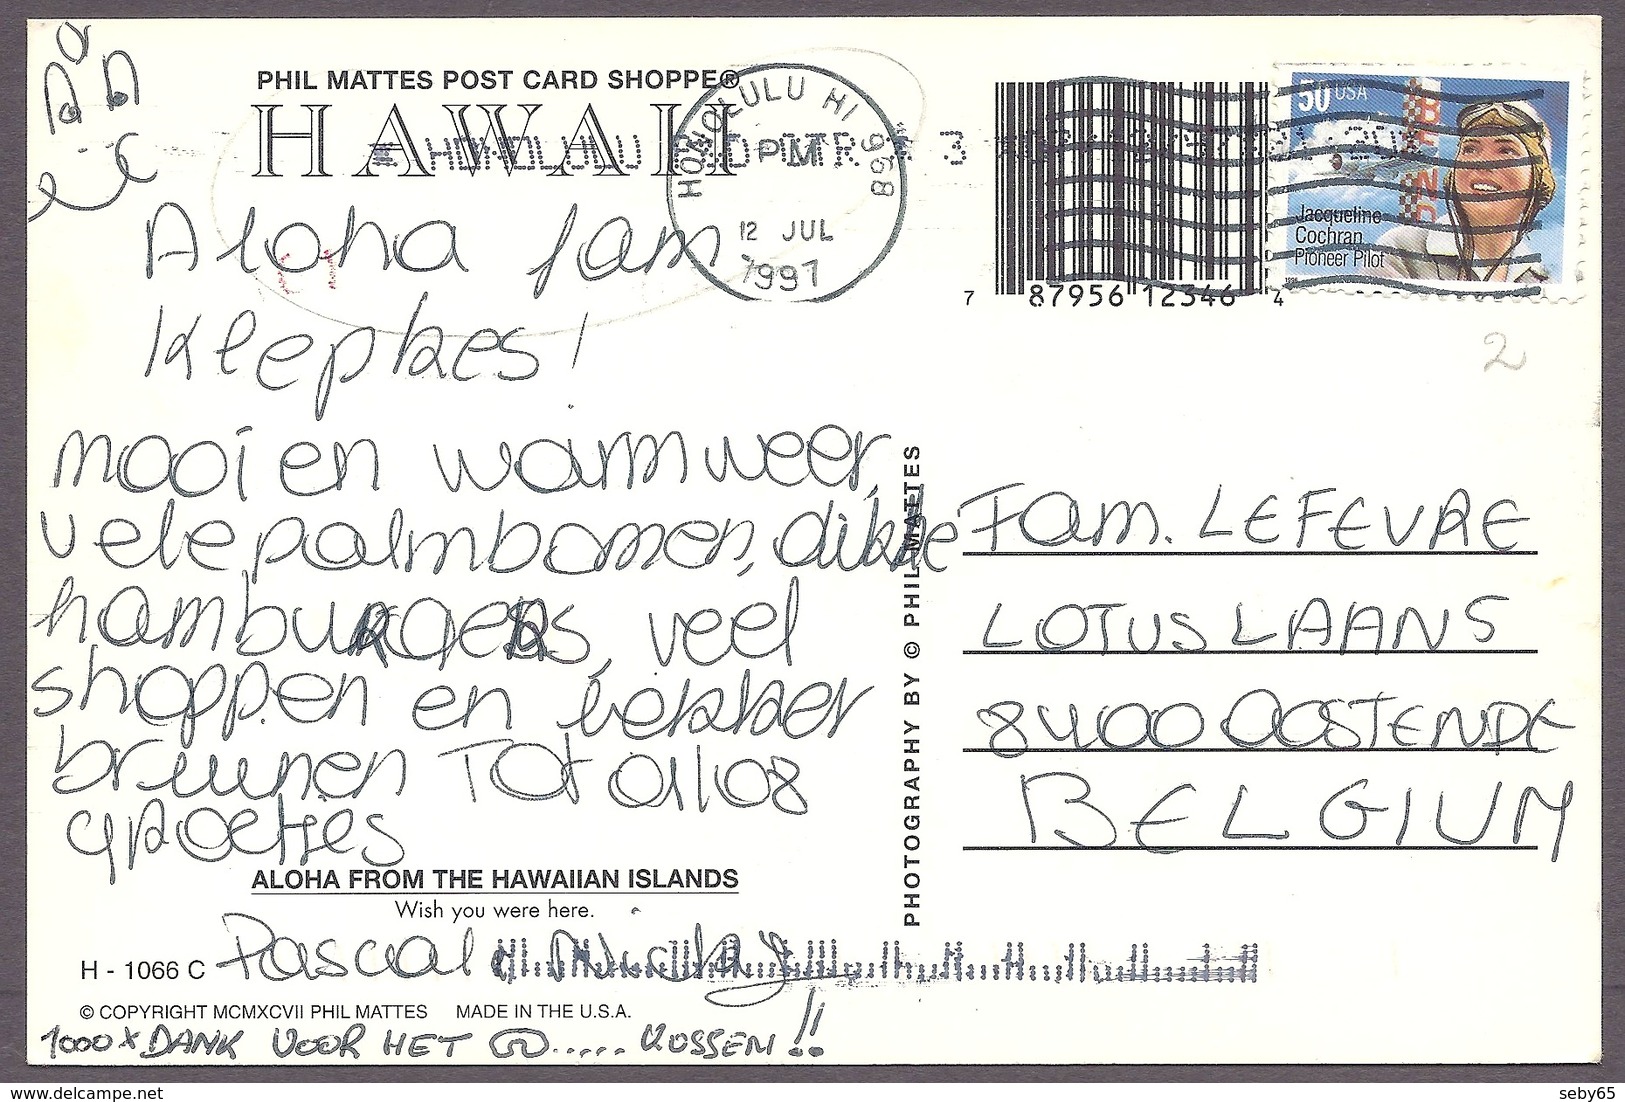 PHIL MATTES POST CARD SHOPPE®
HAWAII
HONOLULU HI 968
PM
12 JUL
1997
3
7 87956 12346 4
50 USA
Jacqueline
Cochran
Pioneer Pilot
2
Aloha fam
Kleepkes!
mooi en warm weer,
vele palmbomen, dikke
hamburgers, veel
shoppen en lekker
bruinen Tot 01/08
groetjes
ALOHA FROM THE HAWAIIAN ISLANDS
Wish you were here.
Pascal
H - 1066 C
© COPYRIGHT MCMXCVII PHIL MATTES MADE IN THE U.S.A.
1000 x DANK VOOR HET ..... KUSSEN!!
PHOTOGRAPHY BY © PHIL MATTES
Fam. LEFEVRE
LOTUSLAAN 5
8400 OOSTENDE
BELGIUM
www.delcampe.net
seby65